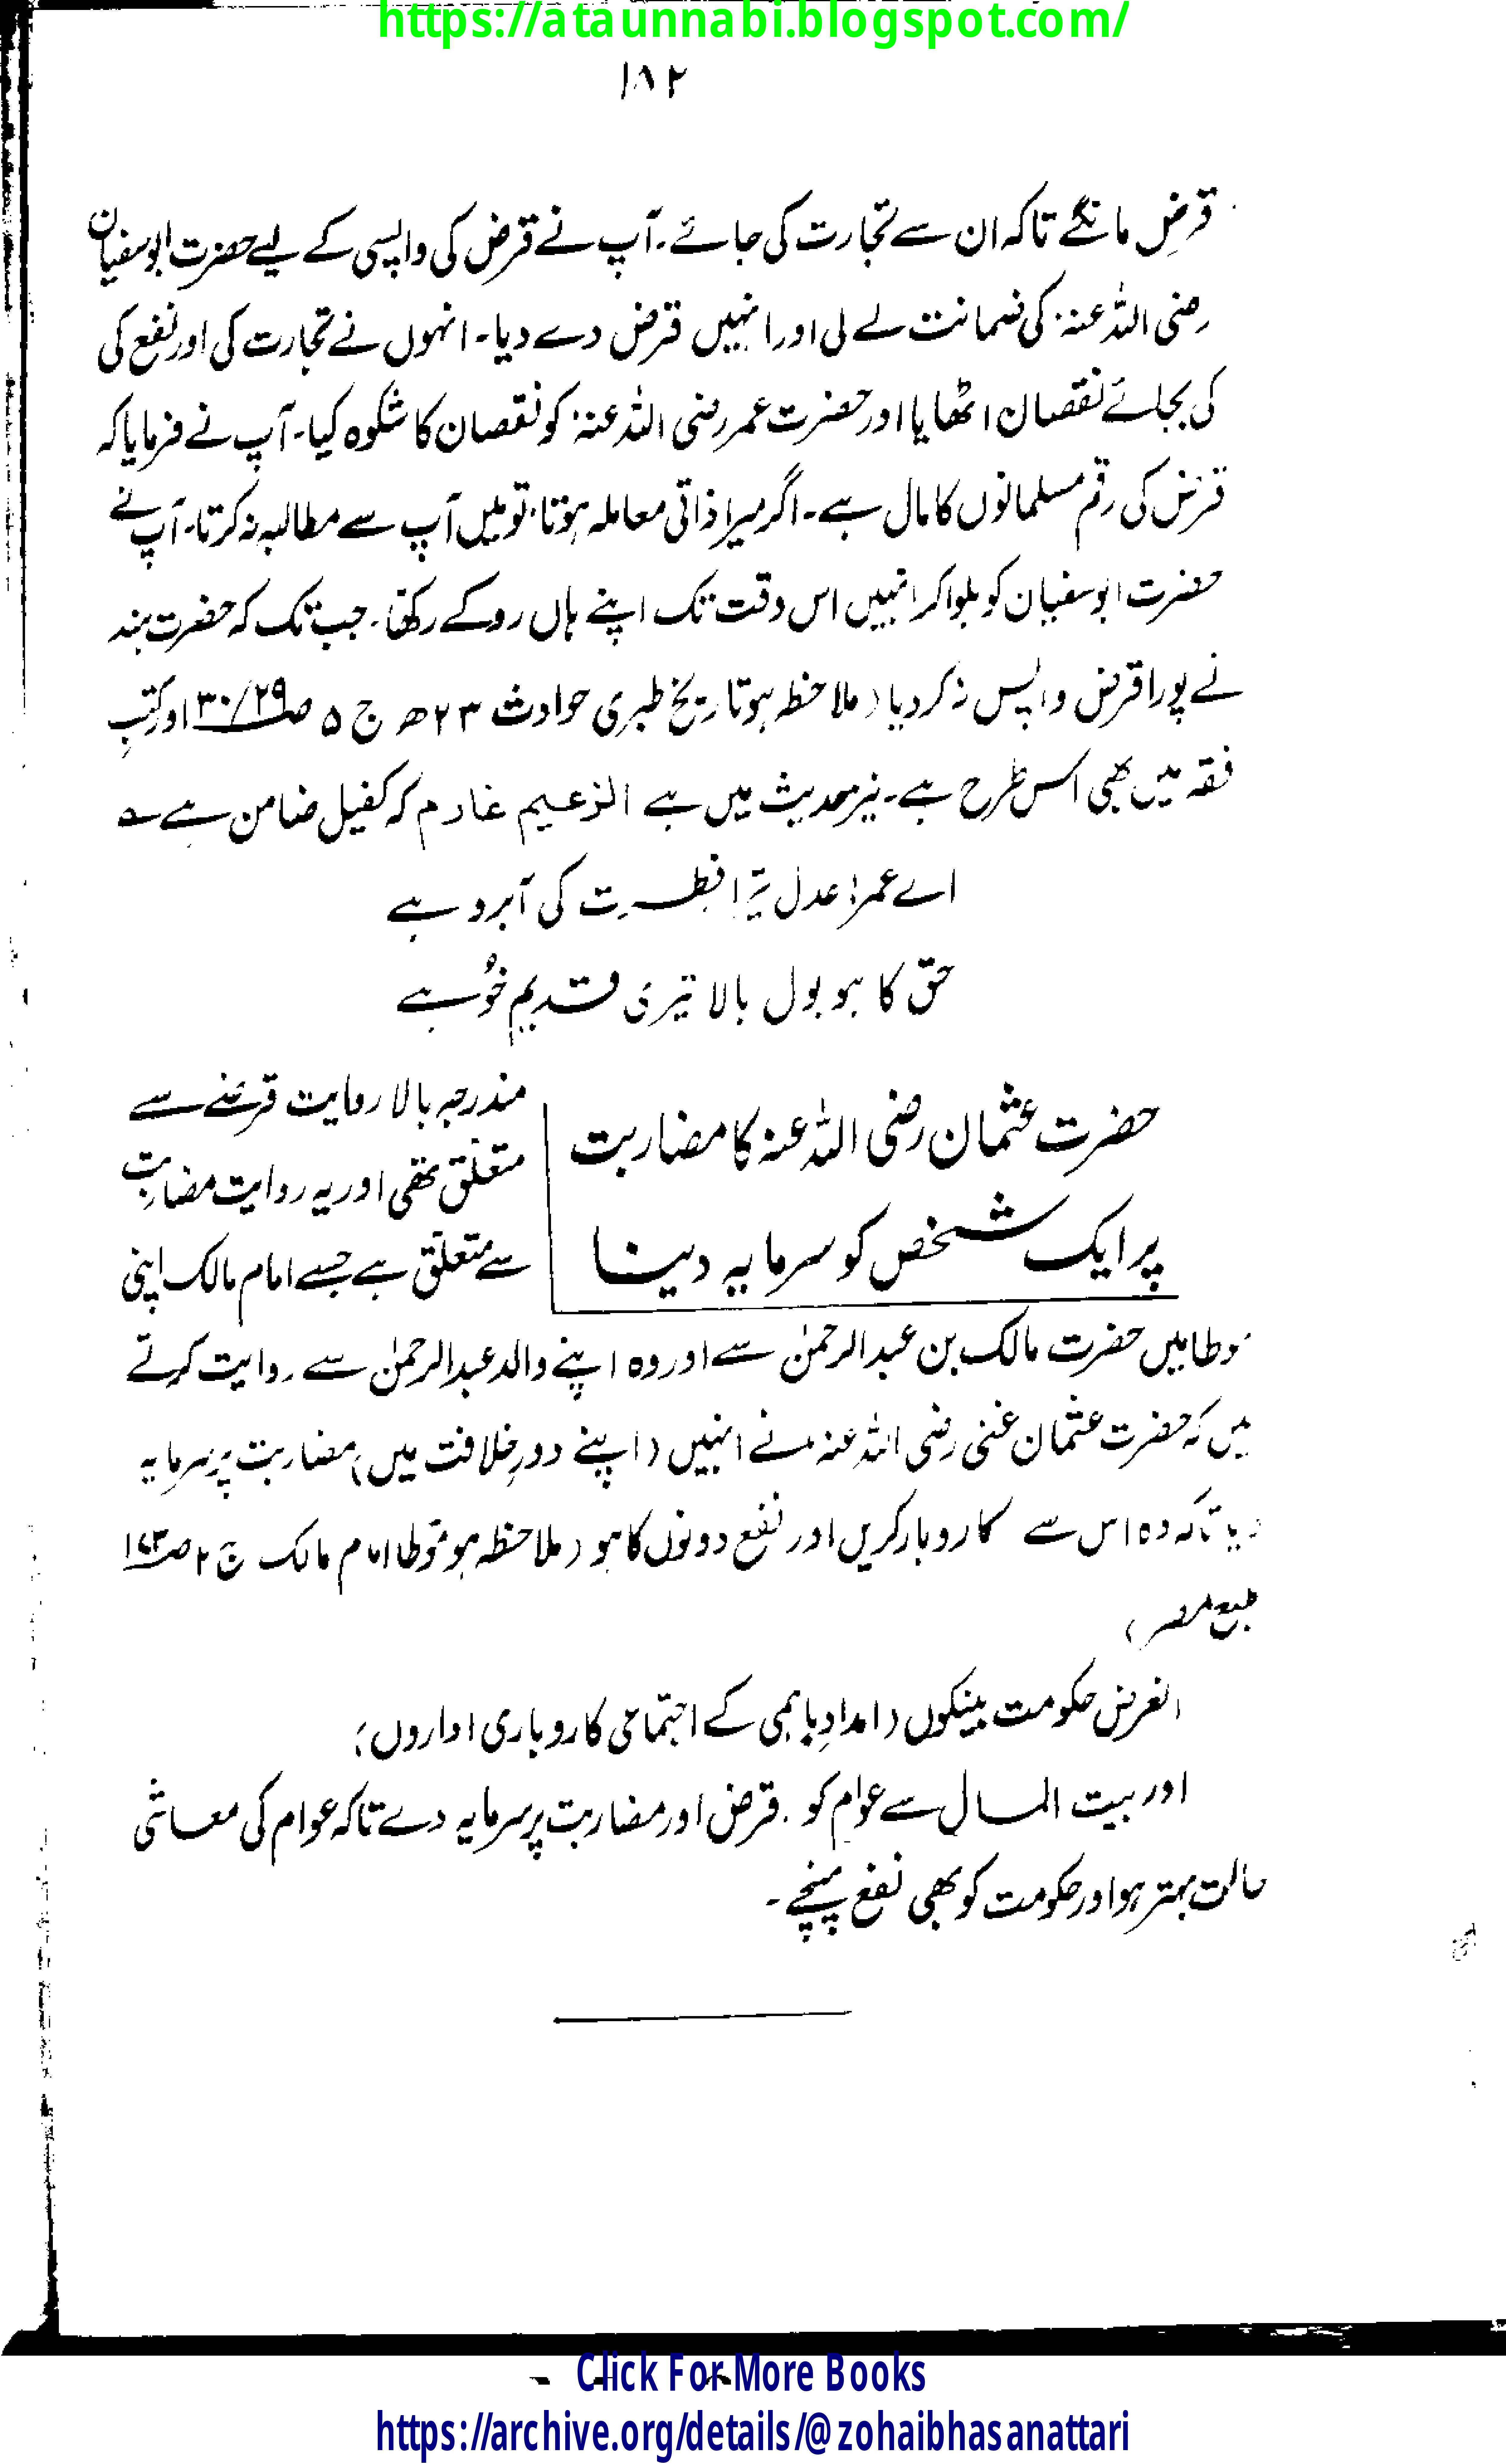 https://ataunnabi.blogspot.com/
۱۸۲
قرض مانگے تاکہ ان سے تجارت کی جائے۔ آپ نے قرض کی واپسی کے لیے حضرت ابوسفیان
رضی اللہ عنہ کی ضمانت لے لی اور انہیں قرض دے دیا۔ انہوں نے تجارت کی اور نفع کی
کی بجائے نقصان اٹھایا اور حضرت عمر رضی اللہ عنہ کو نقصان کا شکوہ کیا۔ آپ نے فرمایا کہ
قرض کی رقم مسلمانوں کا مال ہے۔ اگر میرا ذاتی معاملہ ہوتا، تو میں آپ سے مطالبہ نہ کرتا۔ آپ نے
حضرت ابوسفیان کو بلوا کر انہیں اس وقت تک اپنے ہاں روکے رکھا۔ جب تک کہ حضرت ہند
نے پورا قرض واپس نہ کردیا (ملاحظہ ہو تاریخ طبری حوادث ۲۳ھ ج ۵ ص ۲۹/۳۰ اور کتبِ
فقہ میں بھی اسی طرح ہے۔ نیز حدیث میں ہے الزعیم غارم کہ کفیل ضامن ہے ؎
اے عمر! عدل تیرا فطرت کی آبرو ہے
حق کا ہو بول بالا تیری قدیم خُو ہے
حضرت عثمان رضی اللہ عنہ کا مضاربت
پر ایک شخص کو سرمایہ دینا
مندرجہ بالا روایت قرضے سے
متعلق تھی اور یہ روایت مضاربت
سے متعلق ہے جسے امام مالک اپنی
موطا میں حضرت مالک بن عبدالرحمٰن سے اور وہ اپنے والد عبدالرحمٰن سے روایت کرتے
ہیں کہ حضرت عثمان غنی رضی اللہ عنہ نے انہیں (اپنے دورِ خلافت میں) مضاربت پر سرمایہ
دیا تاکہ وہ اس سے کاروبار کریں اور نفع دونوں کا ہو (ملاحظہ ہو مؤطا امام مالک ج ۲ ص ۱۷۳
طبع مصر)
الغرض حکومت بینکوں (امدادِ باہمی کے اجتماعی کاروباری اداروں)
اور بیت المال سے عوام کو قرض اور مضاربت پر سرمایہ دے تاکہ عوام کی معاشی
حالت بہتر ہو اور حکومت کو بھی نفع پہنچے۔
Click For More Books
https://archive.org/details/@zohaibhasanattari